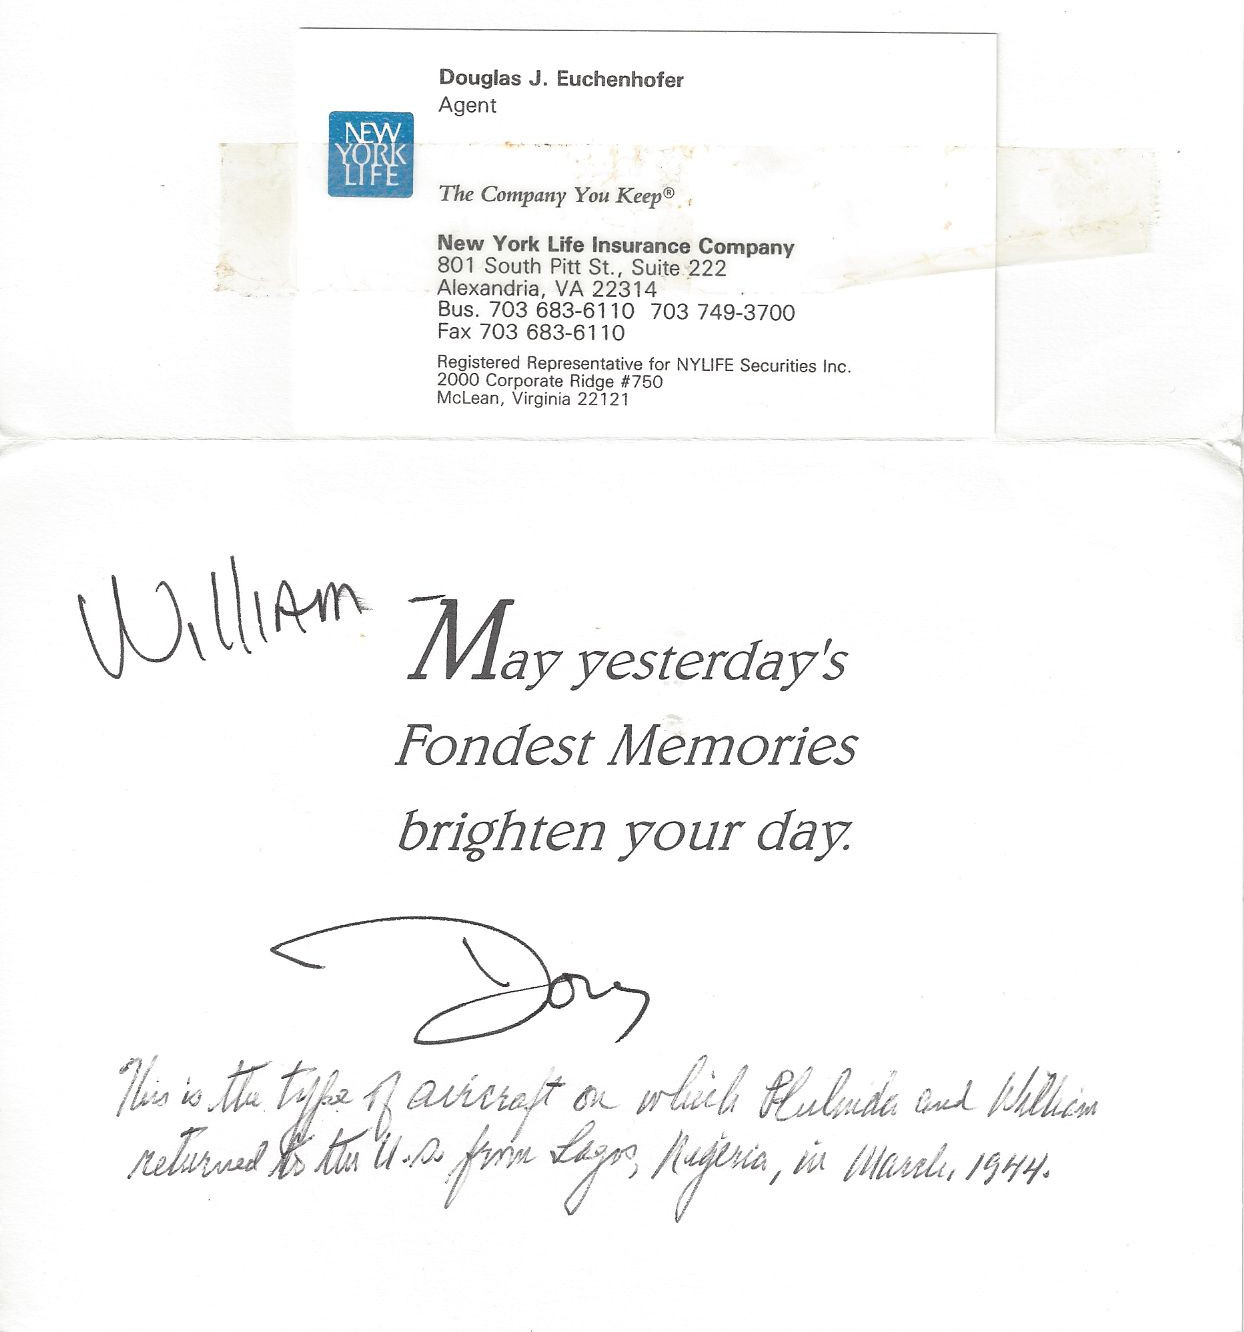 Douglas J. Euchenhofer
Agent
NEW
YORK
LIFE
The Company You Keep®
New York Life Insurance Company
801 South Pitt St., Suite 222
Alexandria, VA 22314
Bus. 703 683-6110 703 749-3700
Fax 703 683-6110
Registered Representative for NYLIFE Securities Inc.
2000 Corporate Ridge #750
McLean, Virginia 22121
William
May yesterday's
Fondest Memories
brighten your day.
This is the type of aircraft on which and William
returned to the U.S. from Lagos, Nigeria, in March, 1944.